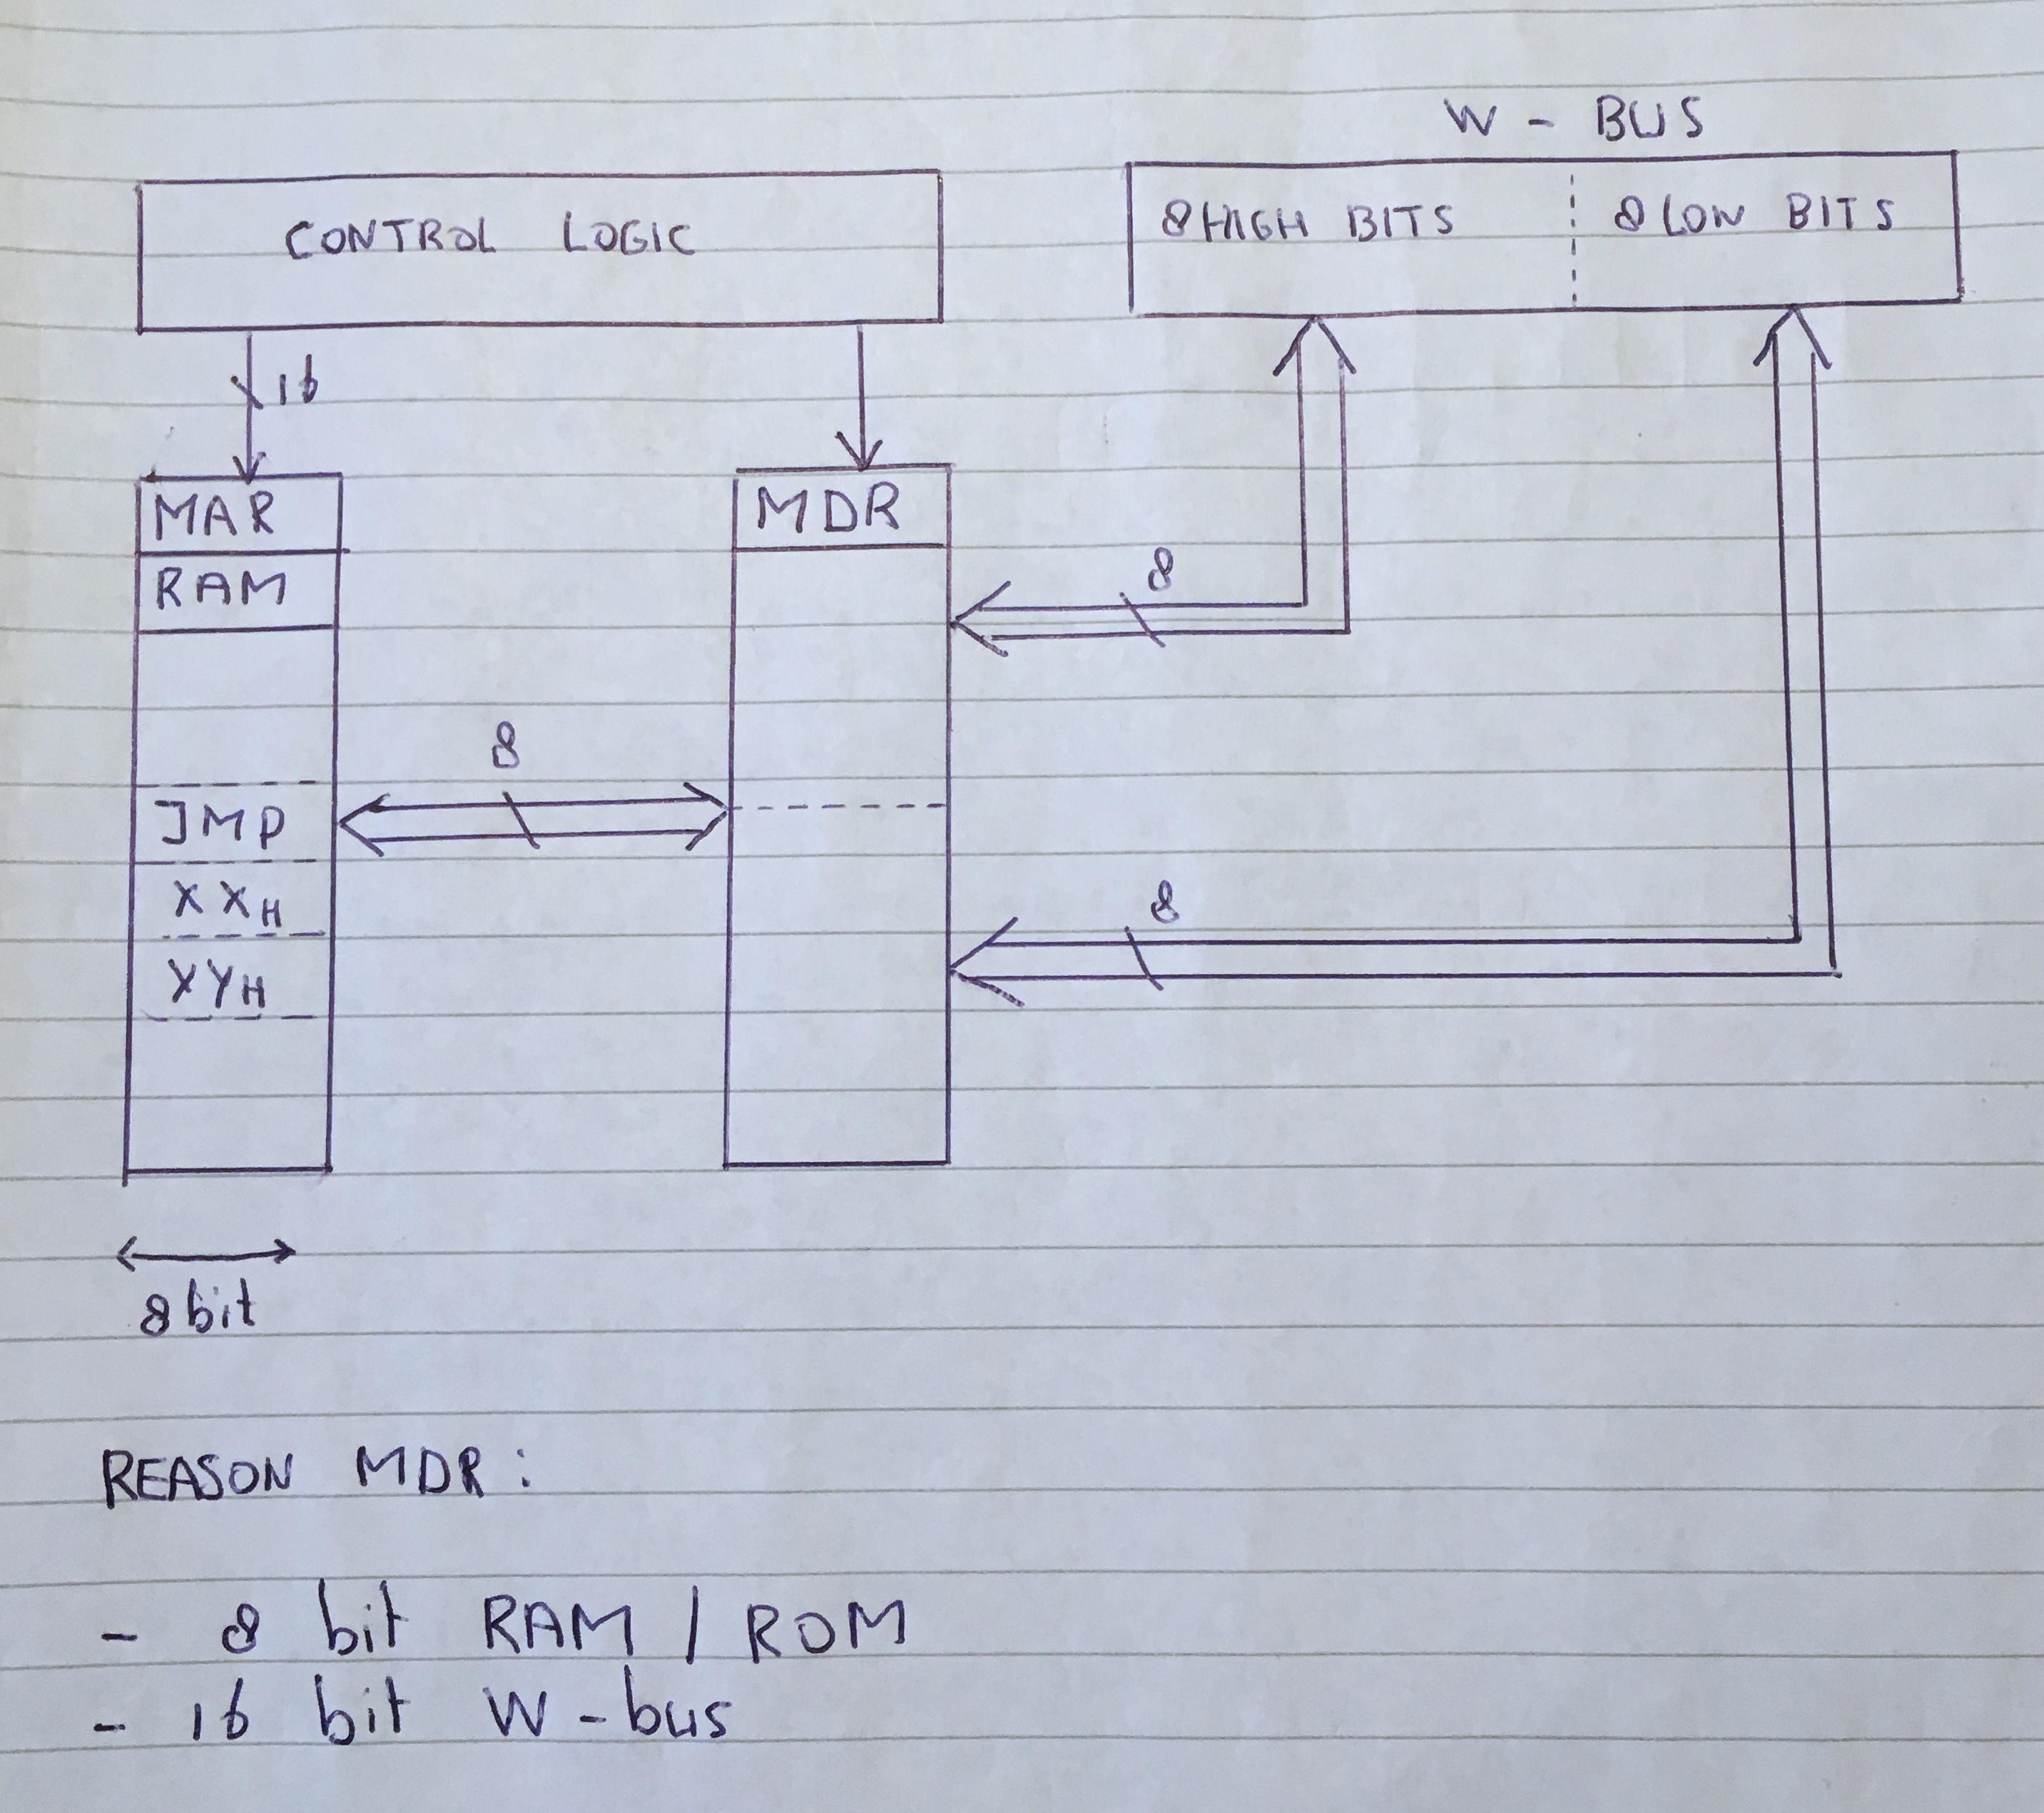 W - BUS
CONTROL LOGIC
8 HIGH BITS
8 LOW BITS
16
MAR
MDR
RAM
8
8
JMP
XXH
8
XYH
8 bit
REASON MDR:
- 8 bit RAM / ROM
- 16 bit W - bus